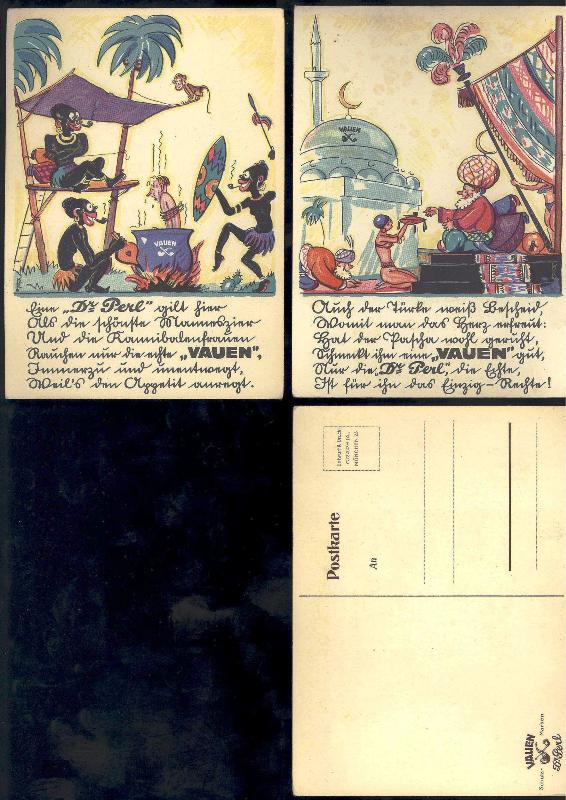 VAUEN
Eine „Dr. Perl" gilt hier
Als die schönste Manneszier
Und die Kannibalenfrauen
Rauchen nur die echte „VAUEN",
Immerzu und unentwegt,
Weil's den Appetit anregt.
VAUEN
Auch der Türke weiß Bescheid,
Womit man das Herz erfreit:
Hat der Pascha wohl geruht,
Schmeckt ihm eine „VAUEN" gut,
Nur die „Dr. Perl", die Echte,
Ist für ihn das Einzig-Rechte!
Postkarte
An
MÜNCHEN 23
VAUEN
Schutz-Marken
Dr. Perl